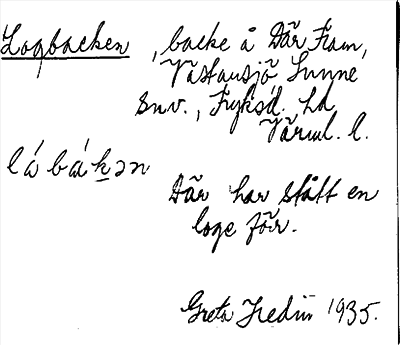 Logbacken, backe å Där Fram,
Västansjö Sunne
snv., Fryksd. hd
Värml. l.
lábákən
Där har stått en
loge förr.
Greta Hedin 1935.